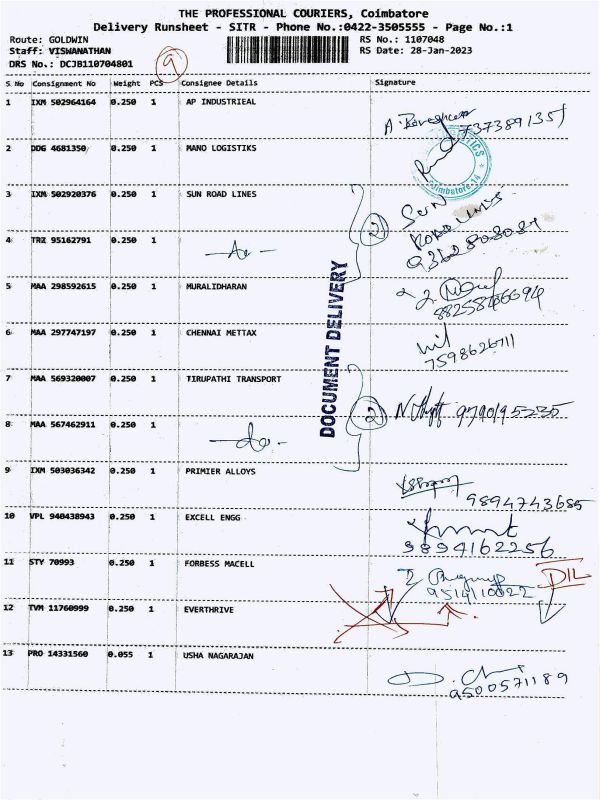 THE PROFESSIONAL COURIERS, Coimbatore
Delivery Runsheet - SITR - Phone No.:0422-3505555 - Page No.:1
Route: GOLDWIN RS No.: 1107048
Staff: VISWANATHAN RS Date: 28-Jan-2023
DRS No.: DCJB110704801 9
S No Consignment No Weight PCS Consignee Details Signature
1 IXM 502964164 0.250 1 AP INDUSTRIEAL
7373891351
2 DDG 4681350 0.250 1 MANO LOGISTIKS
Coimbatore-14
3 IXM 502920376 0.250 1 SUN ROAD LINES 2 SUN
ROAD LINES
4 TRZ 95162791 0.250 1 -do- 9362808084
5 MAA 298592615 0.250 1 MURALIDHARAN
DOCUMENT DELIVERY
6 MAA 297747197 0.250 1 CHENNAI METTAX
7598626711
7 MAA 569320007 0.250 1 TIRUPATHI TRANSPORT
2 9790195235
8 MAA 567462911 0.250 1 -do-
9 IXM 503036342 0.250 1 PRIMIER ALLOYS
9894743685
10 VPL 940438943 0.250 1 EXCELL ENGG
9894162256
11 STY 70993 0.250 1 FORBESS MACELL
D/L
9514110022
12 TVM 11760999 0.250 1 EVERTHRIVE
13 PRO 14331560 0.055 1 USHA NAGARAJAN
9500571189